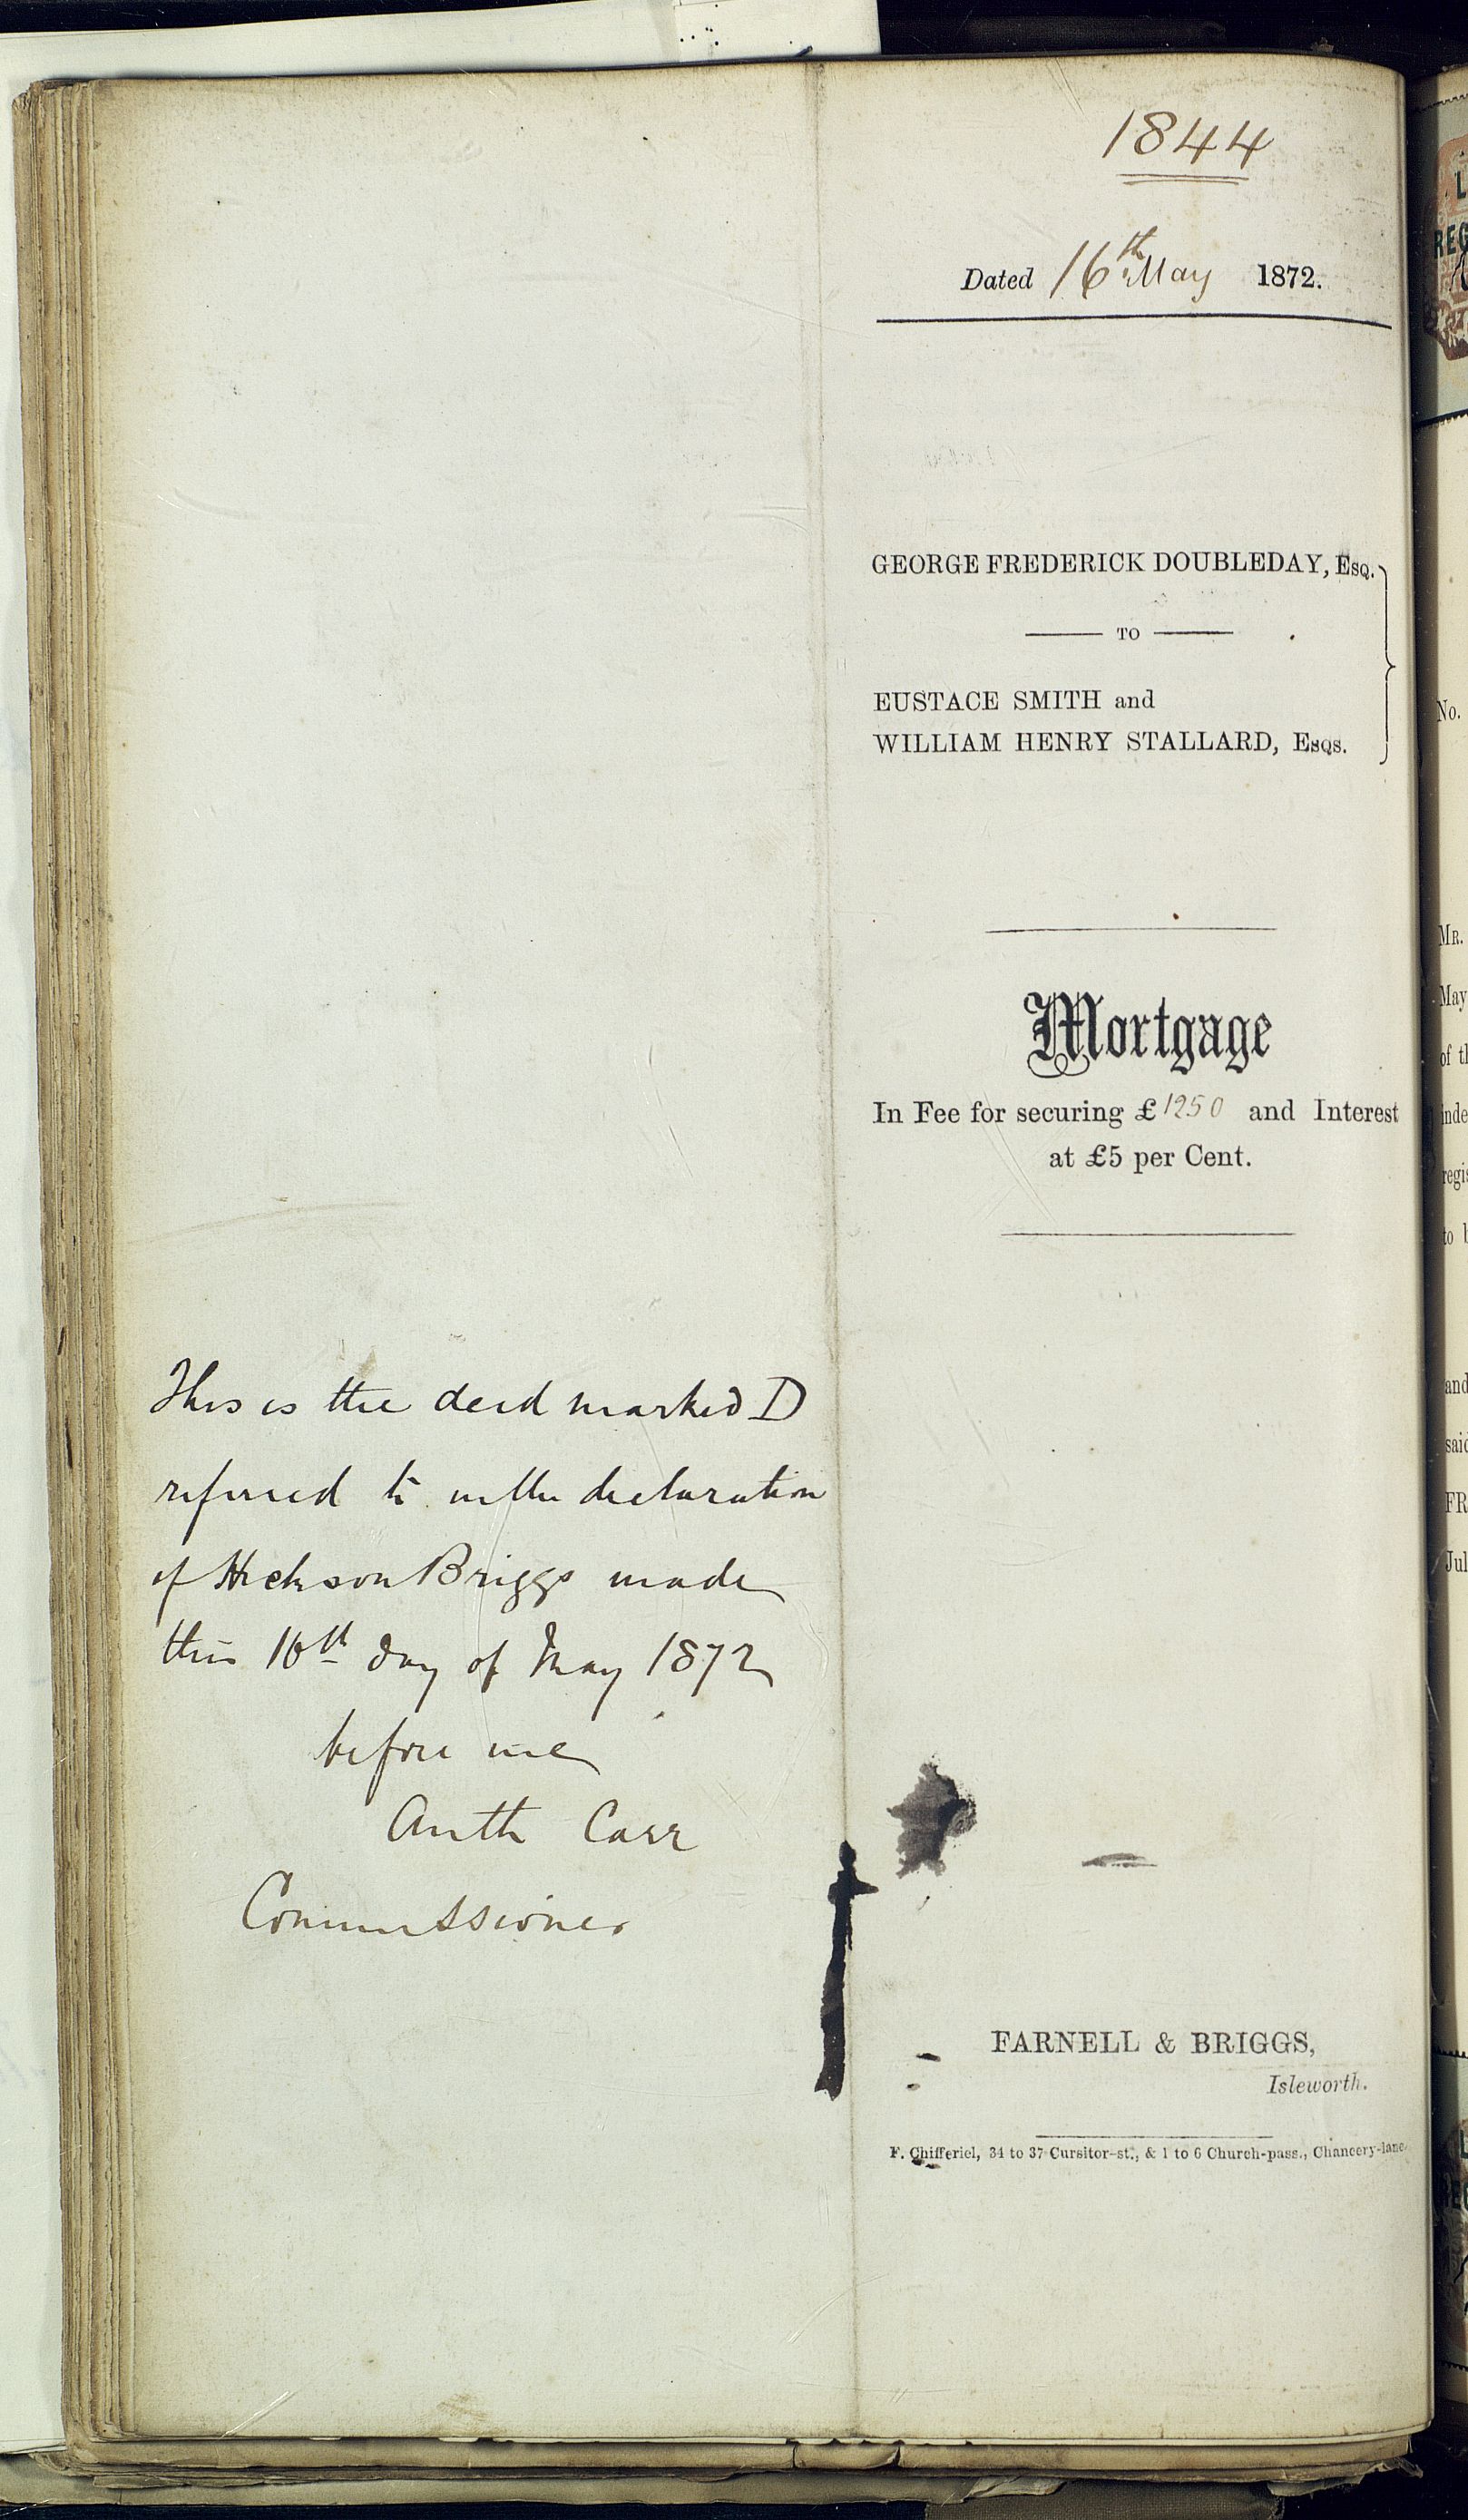 1844
Dated 16th May 1872.
GEORGE FREDERICK DOUBLEDAY, Esq.
TO
EUSTACE SMITH and
WILLIAM HENRY STALLARD, Esqs.
Mortgage
In Fee for securing £1250 and Interest
at £5 per Cent.
This is the deed marked D
referred to in the declaration
of Hickson Briggs made
this 16th day of May 1872
before me
Anth Carr
Commissioner
FARNELL & BRIGGS,
Isleworth.
F. Chifferiel, 34 to 37 Cursitor-st., & 1 to 6 Church-pass., Chancery-lane.
No.
MR.
May
and
said